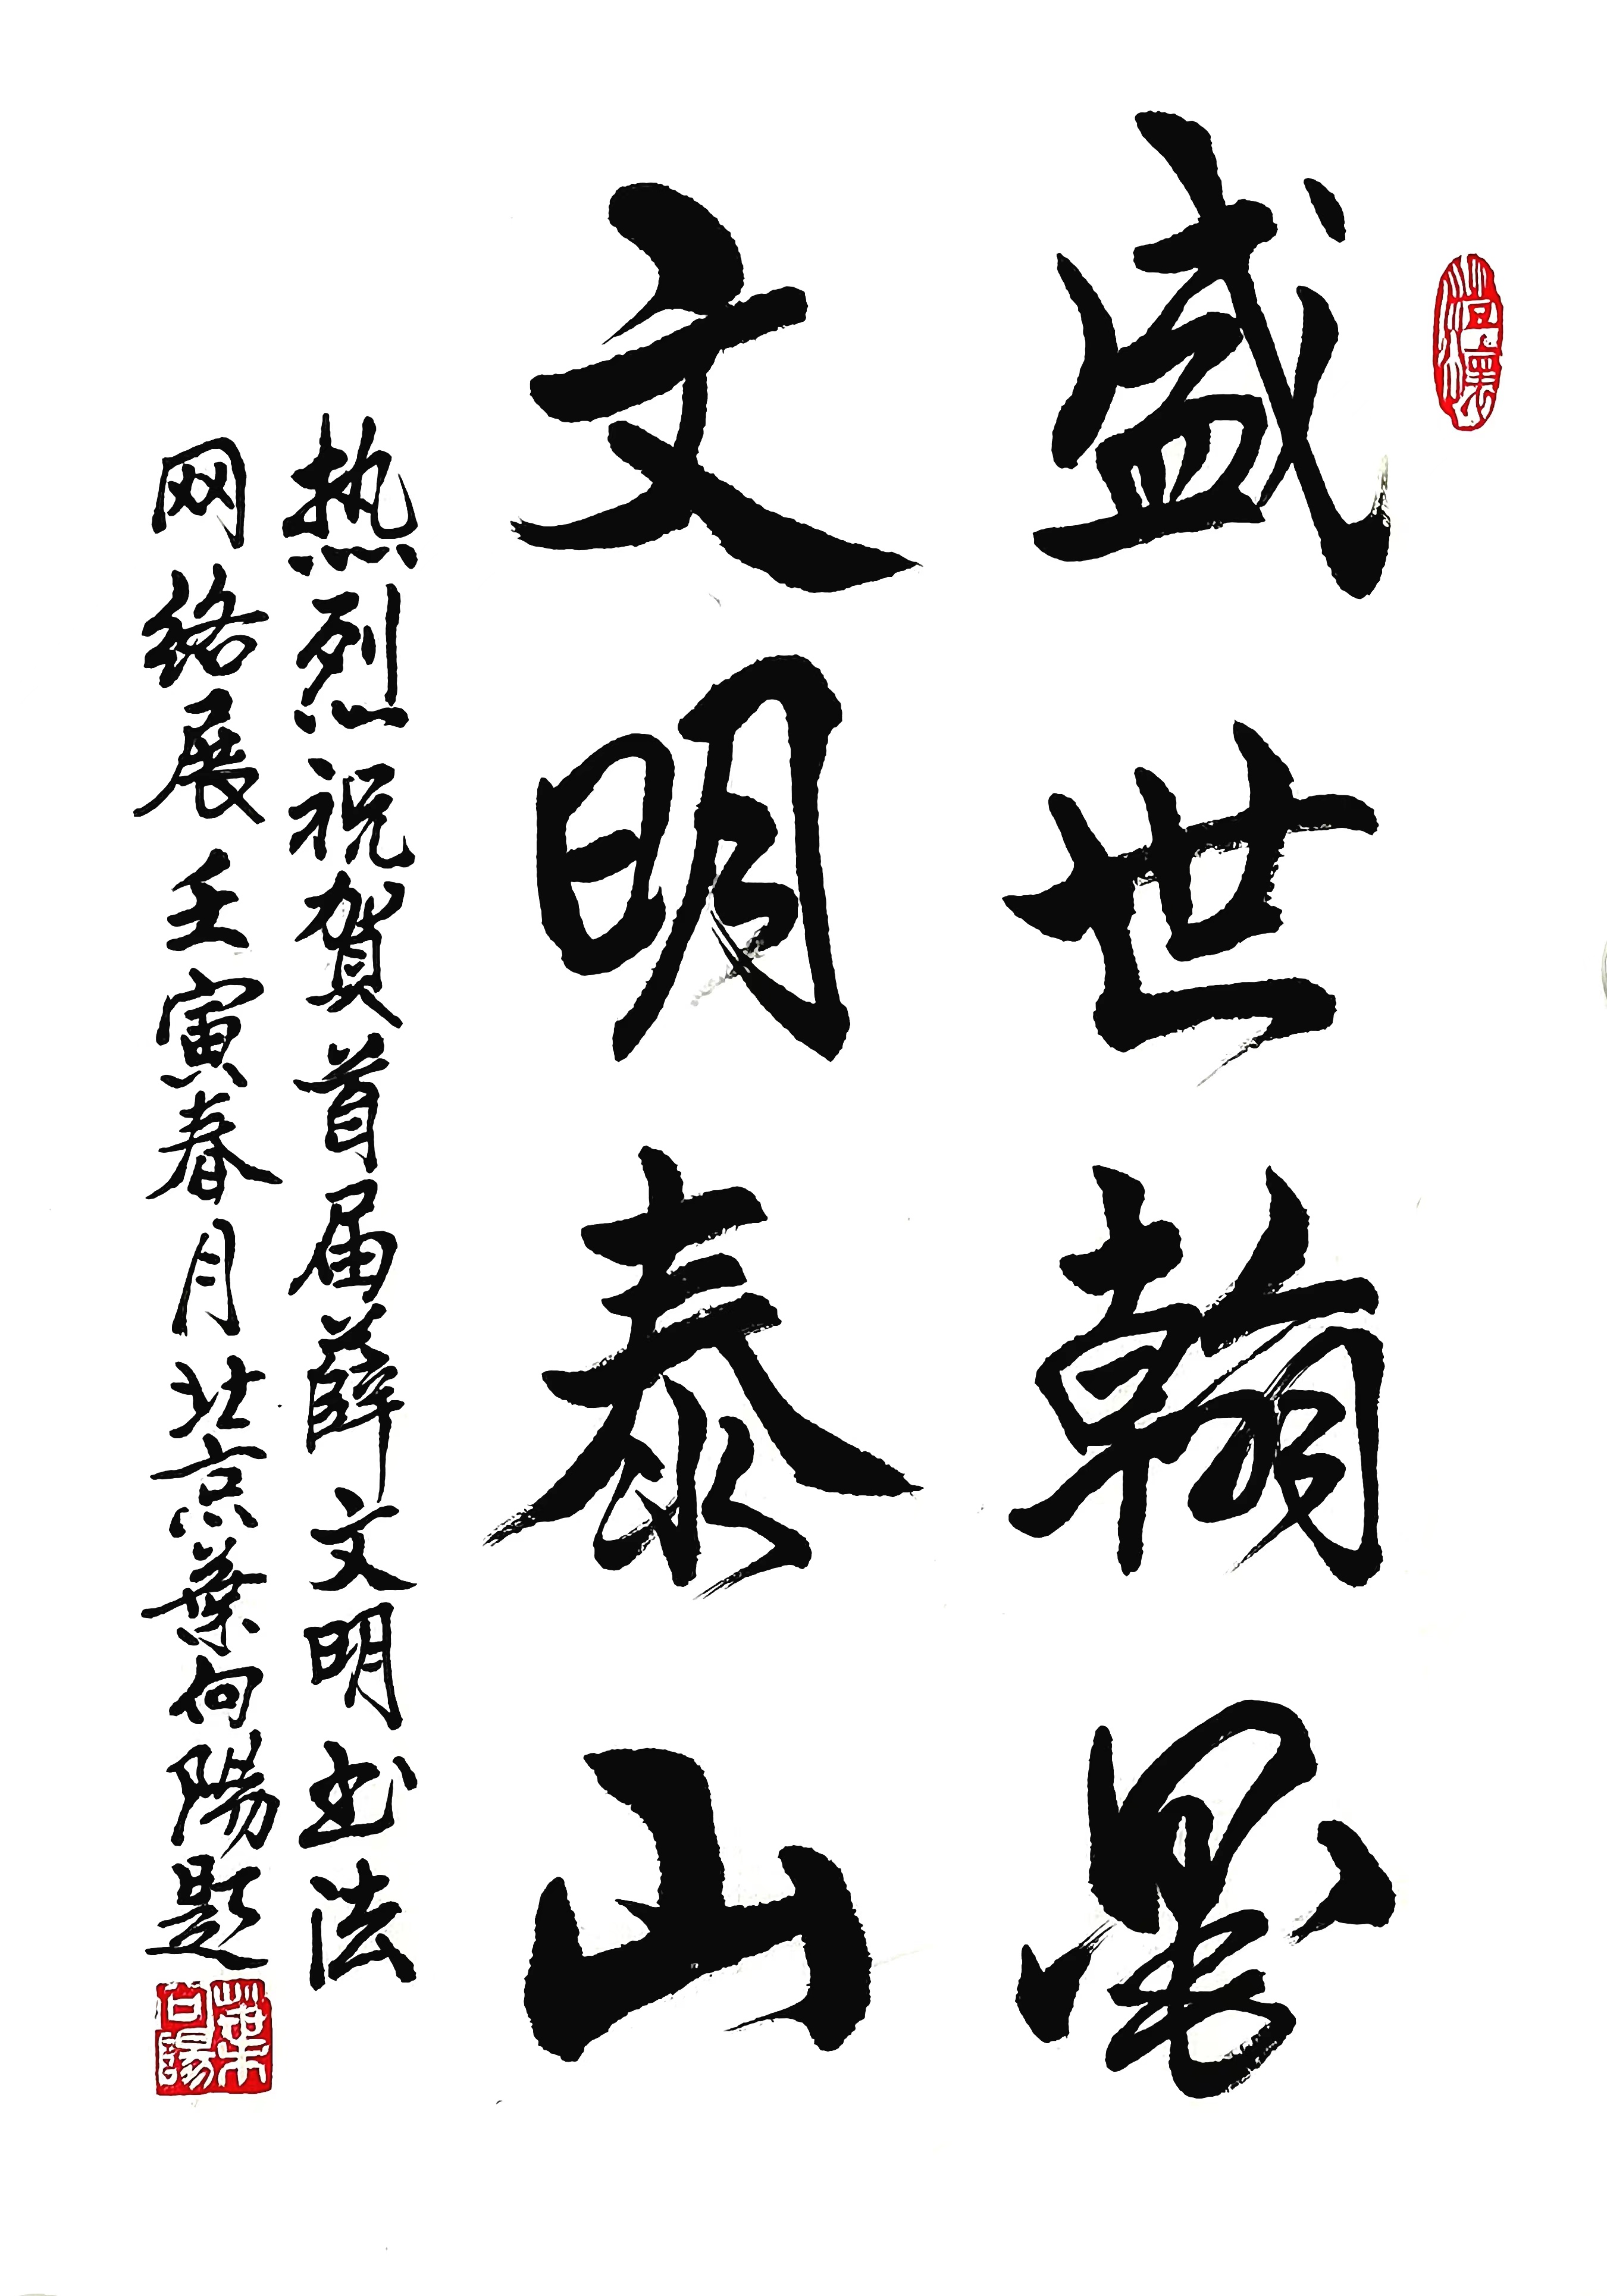 盛世翰墨
文明泰山
热烈祝贺首届薛文明书法
网络展 壬寅春月北京葉向陽题
葉向陽